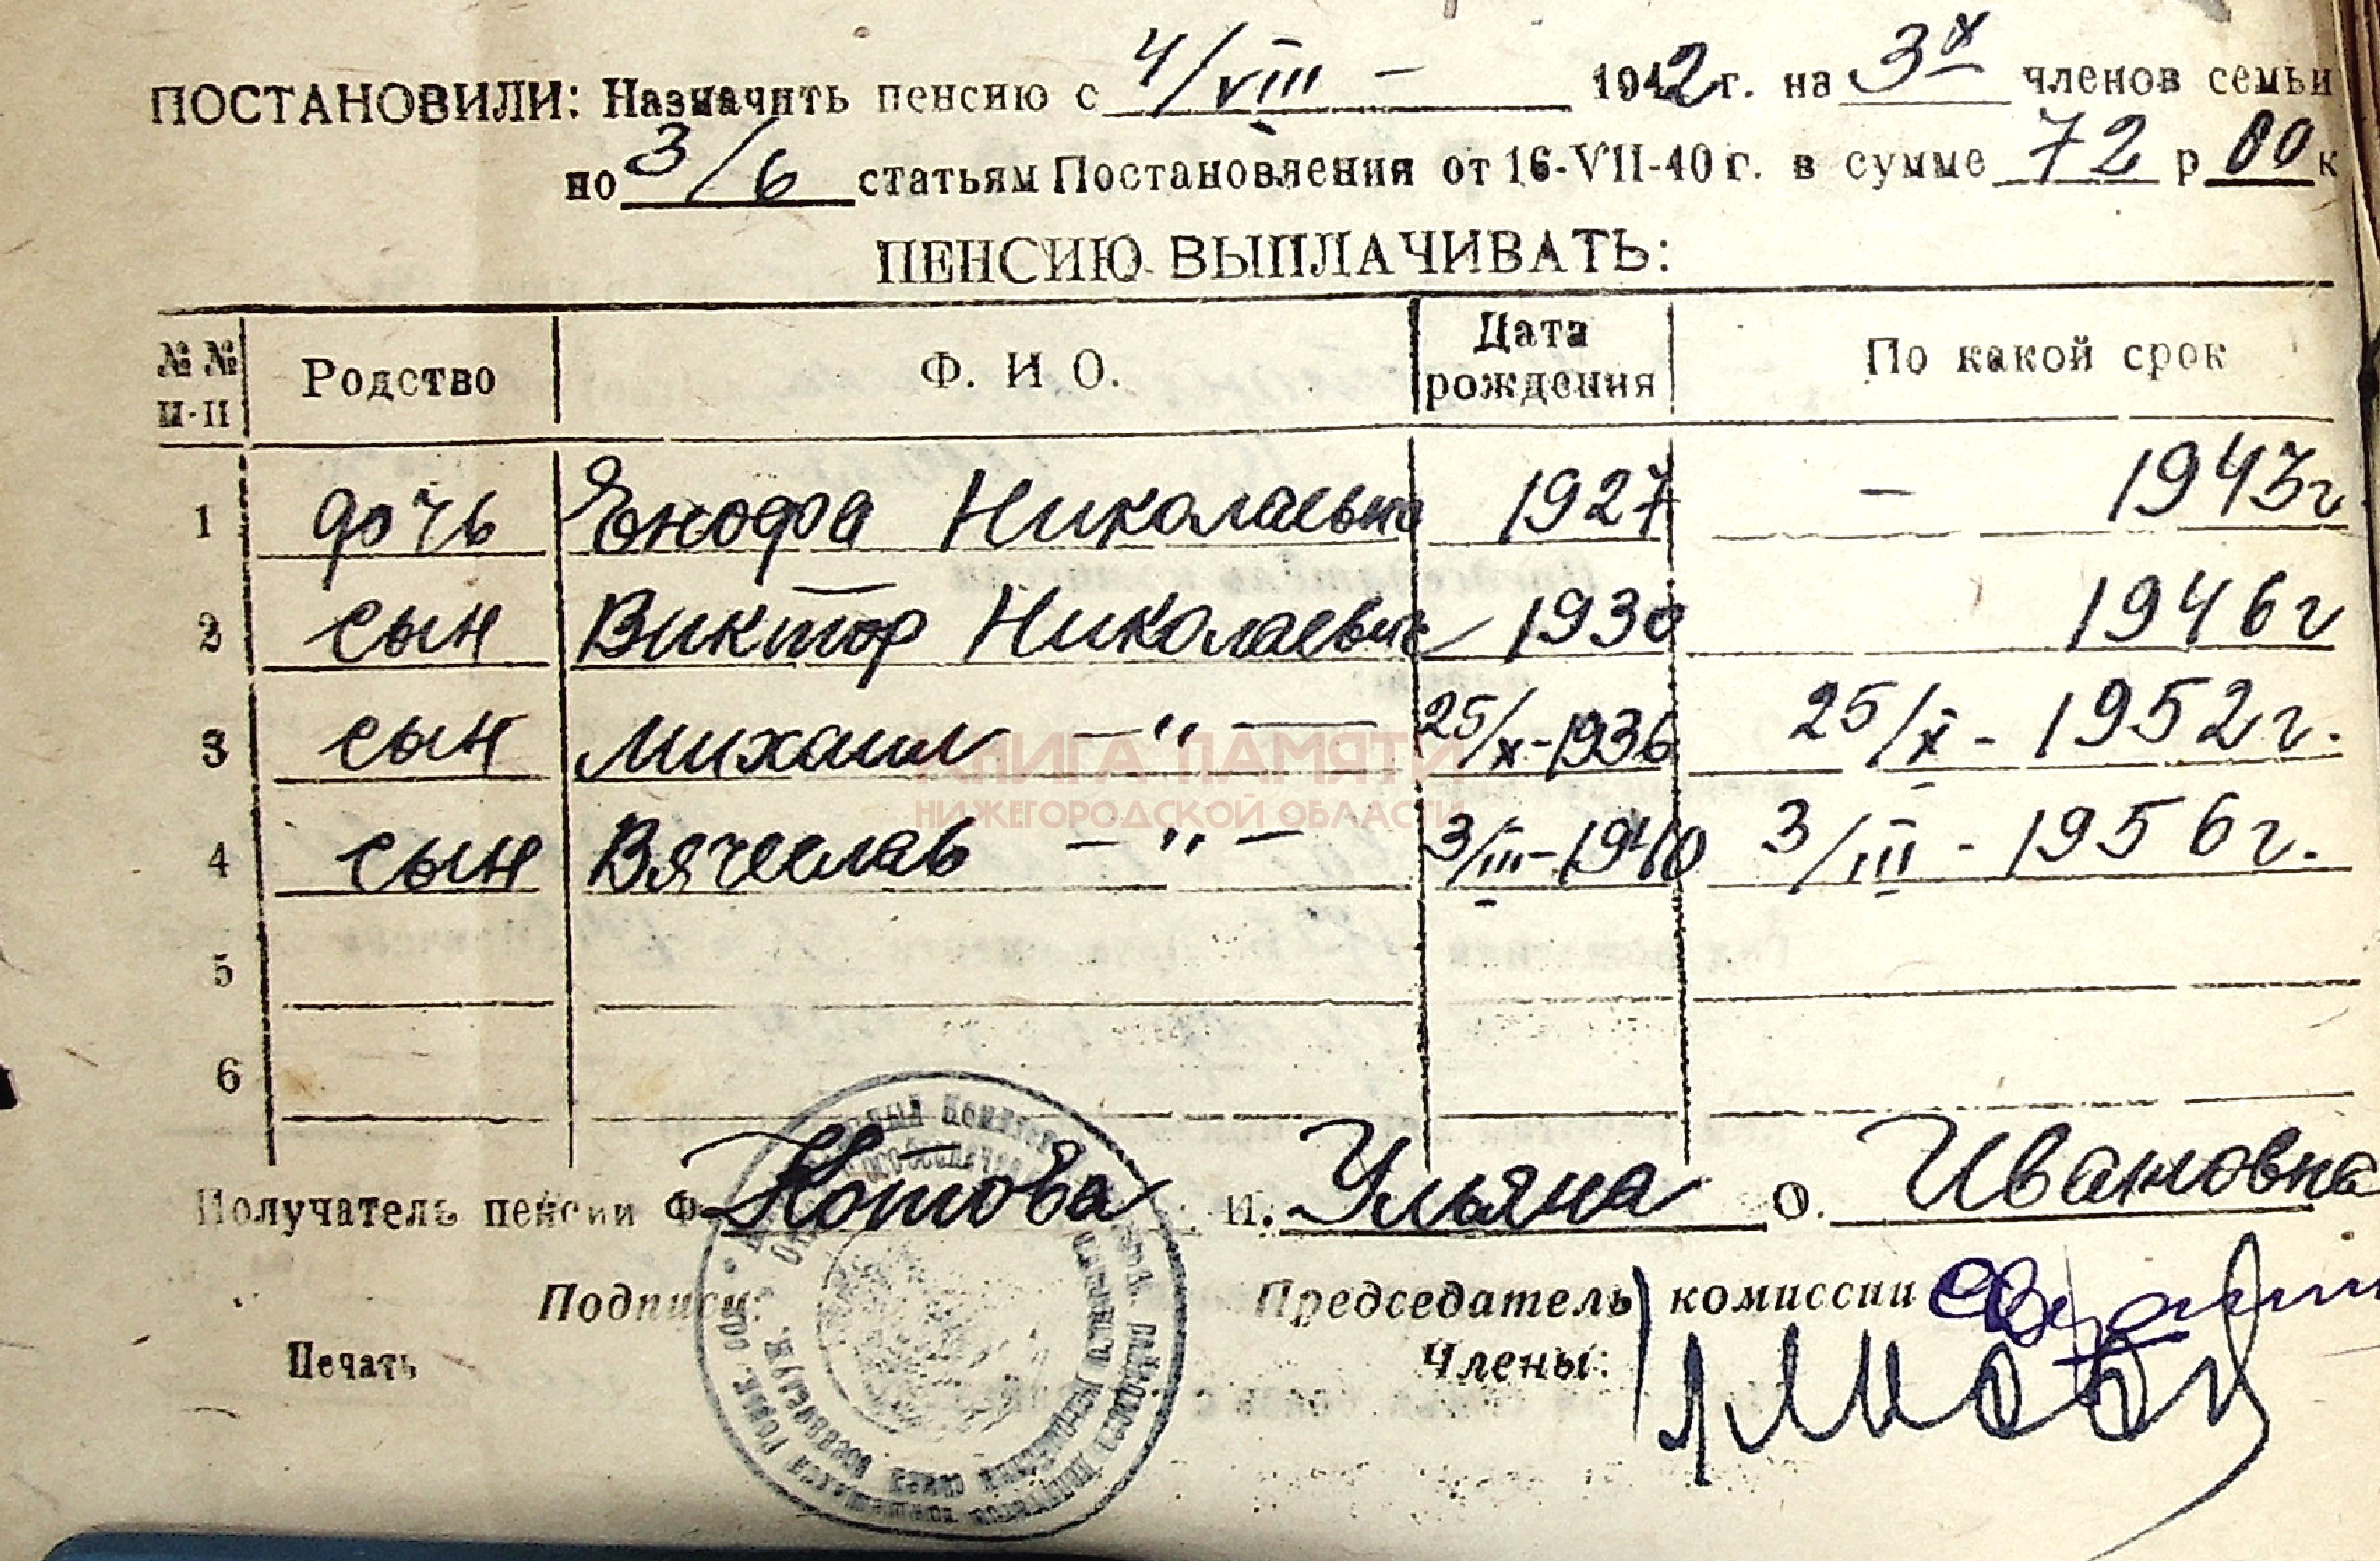 ПОСТАНОВИЛИ: Назначить пенсию с 4/VIII — 1942 г. на 3х членов семьи
по 3/6 статьям Постановления от 16-VII-40 г. в сумме 72 р 00 к
ПЕНСИЮ ВЫПЛАЧИВАТЬ:
№№ п-п Родство Ф. И О. Дата рождения По какой срок
1 дочь Николаевна 1927 — 1943 г
2 сын Виктор Николаевич 1930 1946 г
3 сын Михаил —"— 25/X-1936 25/X - 1952 г.
4 сын Вячеслав —"— 3/III-1940 3/III - 1956 г.
5
6
КНИГА ПАМЯТИ
НИЖЕГОРОДСКОЙ ОБЛАСТИ
Получатель пенсии Ф. Котова И. Ульяна О. Ивановна
Подписи: Председатель комиссии
Печать Члены: